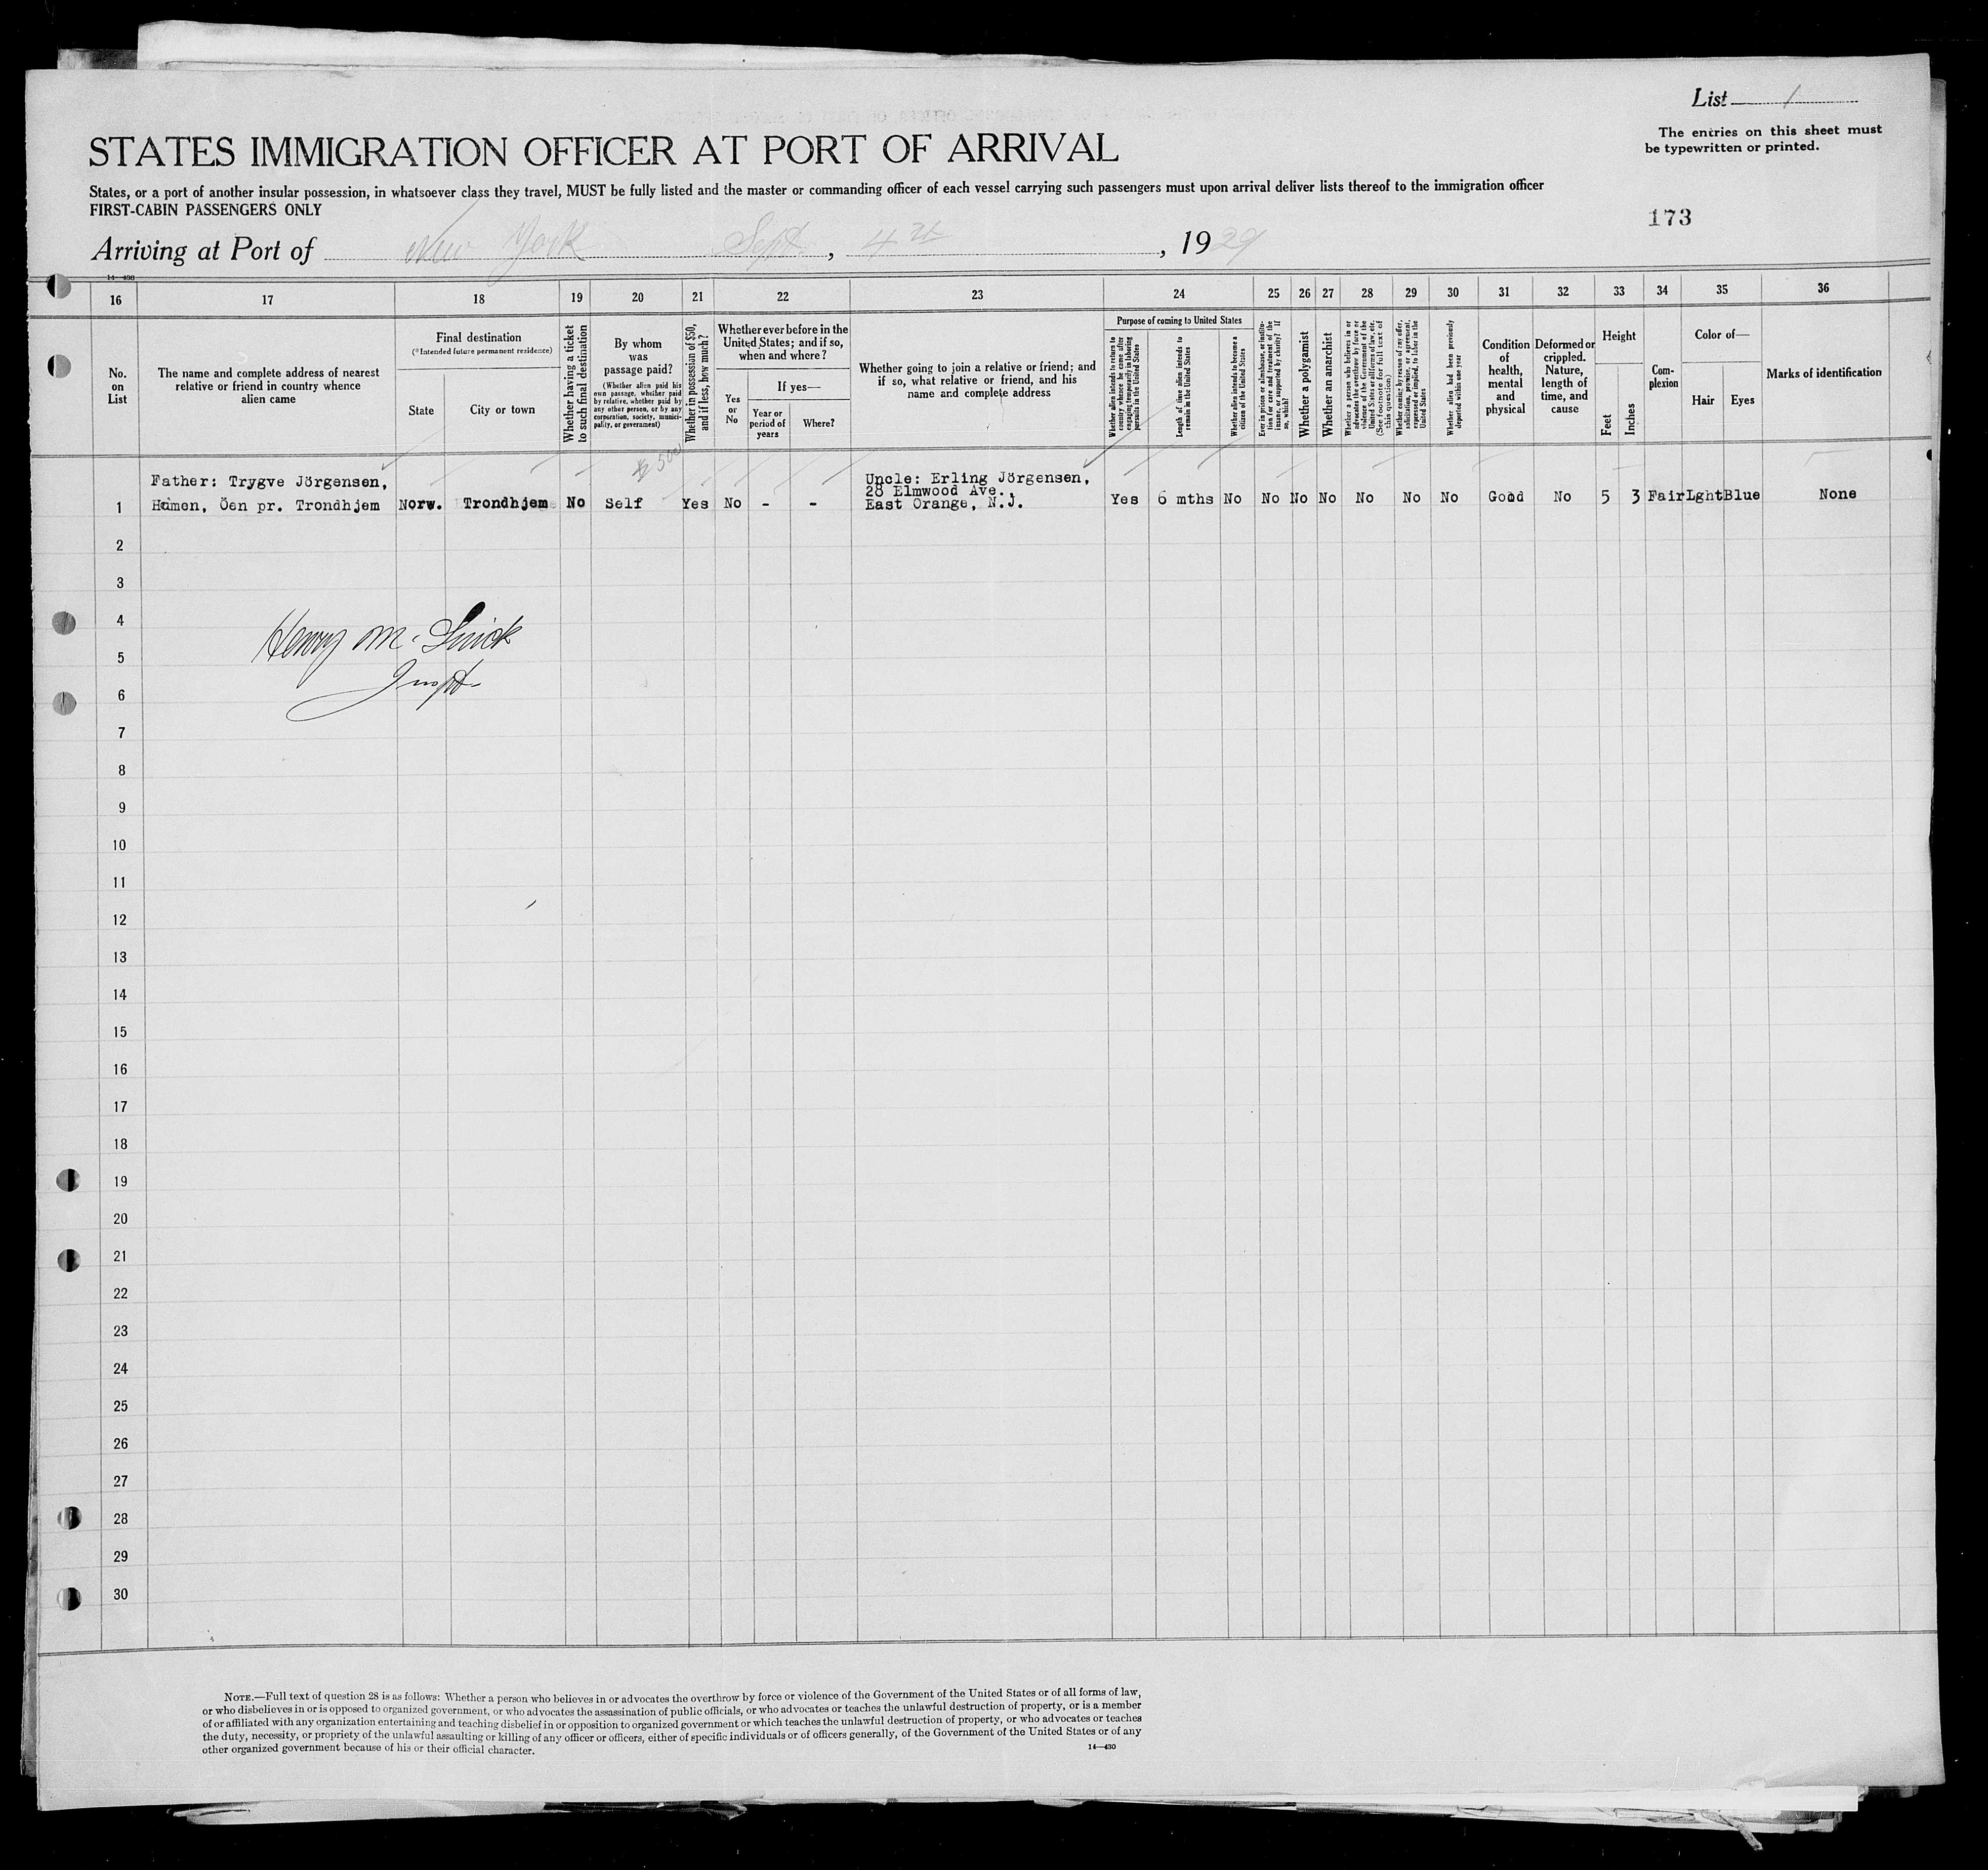 List 1
The entries on this sheet must
be typewritten or printed.
STATES IMMIGRATION OFFICER AT PORT OF ARRIVAL
States, or a port of another insular possession, in whatsoever class they travel, MUST be fully listed and the master or commanding officer of each vessel carrying such passengers must upon arrival deliver lists thereof to the immigration officer
FIRST-CABIN PASSENGERS ONLY
173
Arriving at Port of New York Sept. , 4th , 1929
14—430
16 17 18 19 20 21 22 23 24 25 26 27 28 29 30 31 32 33 34 35 36
No.
on
List
The name and complete address of nearest
relative or friend in country whence
alien came
Final destination
(*Intended future permanent residence)
State
City or town
Whether having a ticket
to such final destination
By whom
was
passage paid?
(Whether alien paid his
own passage, whether paid
by relative, whether paid by
any other person, or by any
corporation, society, munici-
pality, or government)
Whether in possession of $50,
and if less, how much?
Whether ever before in the
United States; and if so,
when and where?
Yes
or
No
If yes—
Year or
period of
years
Where?
Whether going to join a relative or friend; and
if so, what relative or friend, and his
name and complete address
Purpose of coming to United States
Whether alien intends to return to
country whence he came after
engaging temporarily in laboring
pursuits in the United States
Length of time alien intends to
remain in the United States
Whether alien intends to become a
citizen of the United States
Ever in prison or almshouse, or institu-
tion for care and treatment of the
insane, or supported by charity? If
so, which?
Whether a polygamist
Whether an anarchist
Whether a person who believes in or
advocates the overthrow by force or
violence of the Government of the
United States or all forms of law, etc.
(See footnote for full text of
this question)
Whether coming by reason of any offer,
solicitation, promise, or agreement,
expressed or implied, to labor in the
United States
Whether alien had been previously
deported within one year
Condition
of
health,
mental
and
physical
Deformed or
crippled.
Nature,
length of
time, and
cause
Height
Feet
Inches
Com-
plexion
Color of—
Hair
Eyes
Marks of identification
$500
Father: Trygve Jörgensen,
Uncle: Erling Jörgensen,
28 Elmwood Ave.,
1 Hamen, Öen pr. Trondhjem Norw. Trondhjem No Self Yes No - - East Orange, N.J. Yes 6 mths No No No No No No No Good No 5 3 Fair Lght Blue None
2
3
4
Henry M.
5
Inspt.
6
7
8
9
10
11
12
13
14
15
16
17
18
19
20
21
22
23
24
25
26
27
28
29
30
NOTE.—Full text of question 28 is as follows: Whether a person who believes in or advocates the overthrow by force or violence of the Government of the United States or of all forms of law,
or who disbelieves in or is opposed to organized government, or who advocates the assassination of public officials, or who advocates or teaches the unlawful destruction of property, or is a member
of or affiliated with any organization entertaining and teaching disbelief in or opposition to organized government or which teaches the unlawful destruction of property, or who advocates or teaches
the duty, necessity, or propriety of the unlawful assaulting or killing of any officer or officers, either of specific individuals or of officers generally, of the Government of the United States or of any
other organized government because of his or their official character.
14—430